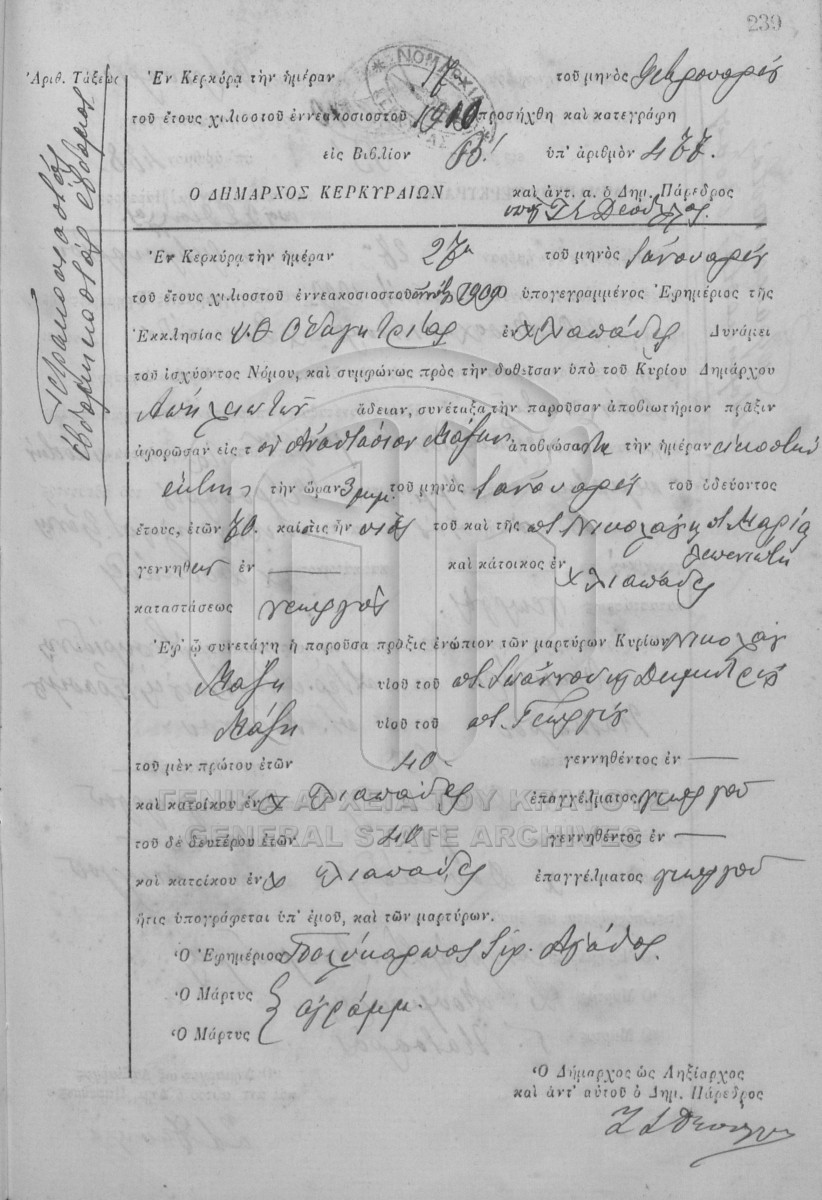 239
Ἀριθ. Τάξεως
Τετρακοσιοστός
ἑβδομηκοστός ἕβδομος
Ἐν Κερκύρᾳ τὴν ἡμέραν 17 τοῦ μηνὸς Φεβρουαρίου
τοῦ ἔτους χιλιοστοῦ ἐννεακοσιοστοῦ 1910 προσήχθη καὶ κατεγράφη
εἰς Βιβλίον Β! ὑπ' ἀριθμὸν 477.
Ο ΔΗΜΑΡΧΟΣ ΚΕΡΚΥΡΑΙΩΝ καὶ ἀντ. α. ὁ Δημ. Πάρεδρος
ΝΟΜΑΡΧΙΑ
Ἐν Κερκύρᾳ τὴν ἡμέραν 27 τοῦ μηνὸς Ἰανουαρίου
τοῦ ἔτους χιλιοστοῦ ἐννεακοσιοστοῦ 1909 ὁ ὑπογεγραμμένος Ἐφημέριος τῆς
Ἐκκλησίας Υ.Θ. Οδηγητρίας ἐν χ Λιαπάδες Δυνάμει
τοῦ ἰσχύοντος Νόμου, καὶ συμφώνως πρὸς τὴν δοθεῖσαν ὑπὸ τοῦ Κυρίου Δημάρχου
ἄδειαν, συνέταξα τὴν παροῦσαν ἀποβιωτήριον πρᾶξιν
ἀφορῶσαν εἰς τ ὸν Ἀναστάσιον Μάζην ἀποβιώσαντα τὴν ἡμέραν εἰκοστὴν
ἕκτην τὴν ὥραν 3 μ.μ. τοῦ μηνὸς Ἰανουαρίου τοῦ ὁδεύοντος
ἔτους, ἐτῶν 70. καὶ εἰς ἦν υἱὸς τοῦ καὶ τῆς ποτ. Νικολάου ποτ. Μαρία
γεννηθεὶς ἐν — καὶ κάτοικος ἐν χ Λιαπάδες
καταστάσεως γεωργὸς
Ἐφ' ᾧ συνετάγη ἡ παροῦσα πρᾶξις ἐνώπιον τῶν μαρτύρων Κυρίων Νικολάου
Μάζη υἱοῦ τοῦ ποτ. Ἰωάννου καὶ Δημητρίου
Μάζη υἱοῦ τοῦ ποτ. Γεωργίου
τοῦ μὲν πρώτου ἐτῶν 40 - γεννηθέντος ἐν —
καὶ κατοίκου ἐν χ Λιαπάδες ἐπαγγέλματος γεωργοῦ
ΓΕΝΙΚΑ ΑΡΧΕΙΑ ΤΟΥ ΚΡΑΤΟΥΣ
GENERAL STATE ARCHIVES
τοῦ δὲ δευτέρου ἐτῶν 40 - γεννηθέντος ἐν —
καὶ κατοίκου ἐν χ Λιαπάδες ἐπαγγέλματος γεωργοῦ
ἥτις ὑπογράφεται ὑπ' ἐμοῦ, καὶ τῶν μαρτύρων.
Ὁ Ἐφημέριος Πολύκαρπος Ἱερ. Ἀγάθος
Ὁ Μάρτυς ἀγράμμ.
Ὁ Μάρτυς
Ὁ Δήμαρχος ὡς Ληξίαρχος
καὶ ἀντ' αὐτοῦ ὁ Δημ. Πάρεδρος